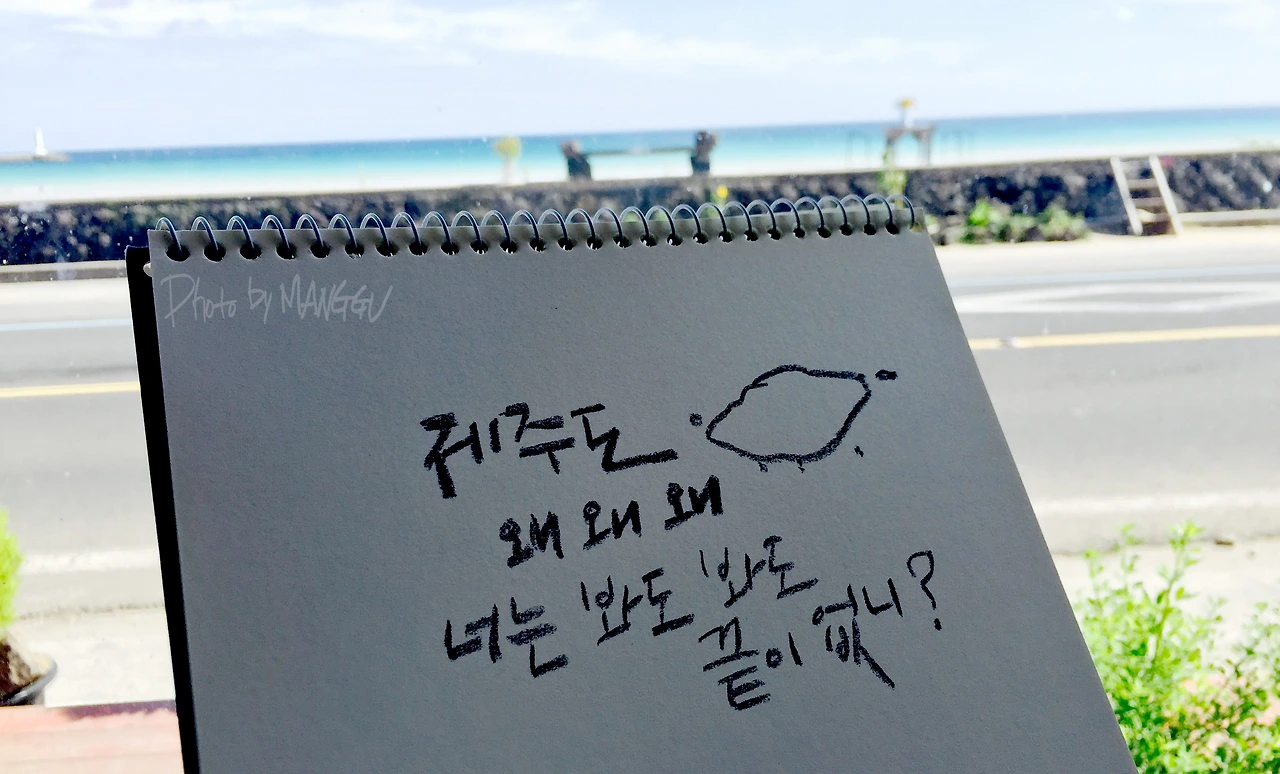 Photo by MANGGU
제주도
왜 왜 왜
너는 봐도 봐도
끝이 없니?